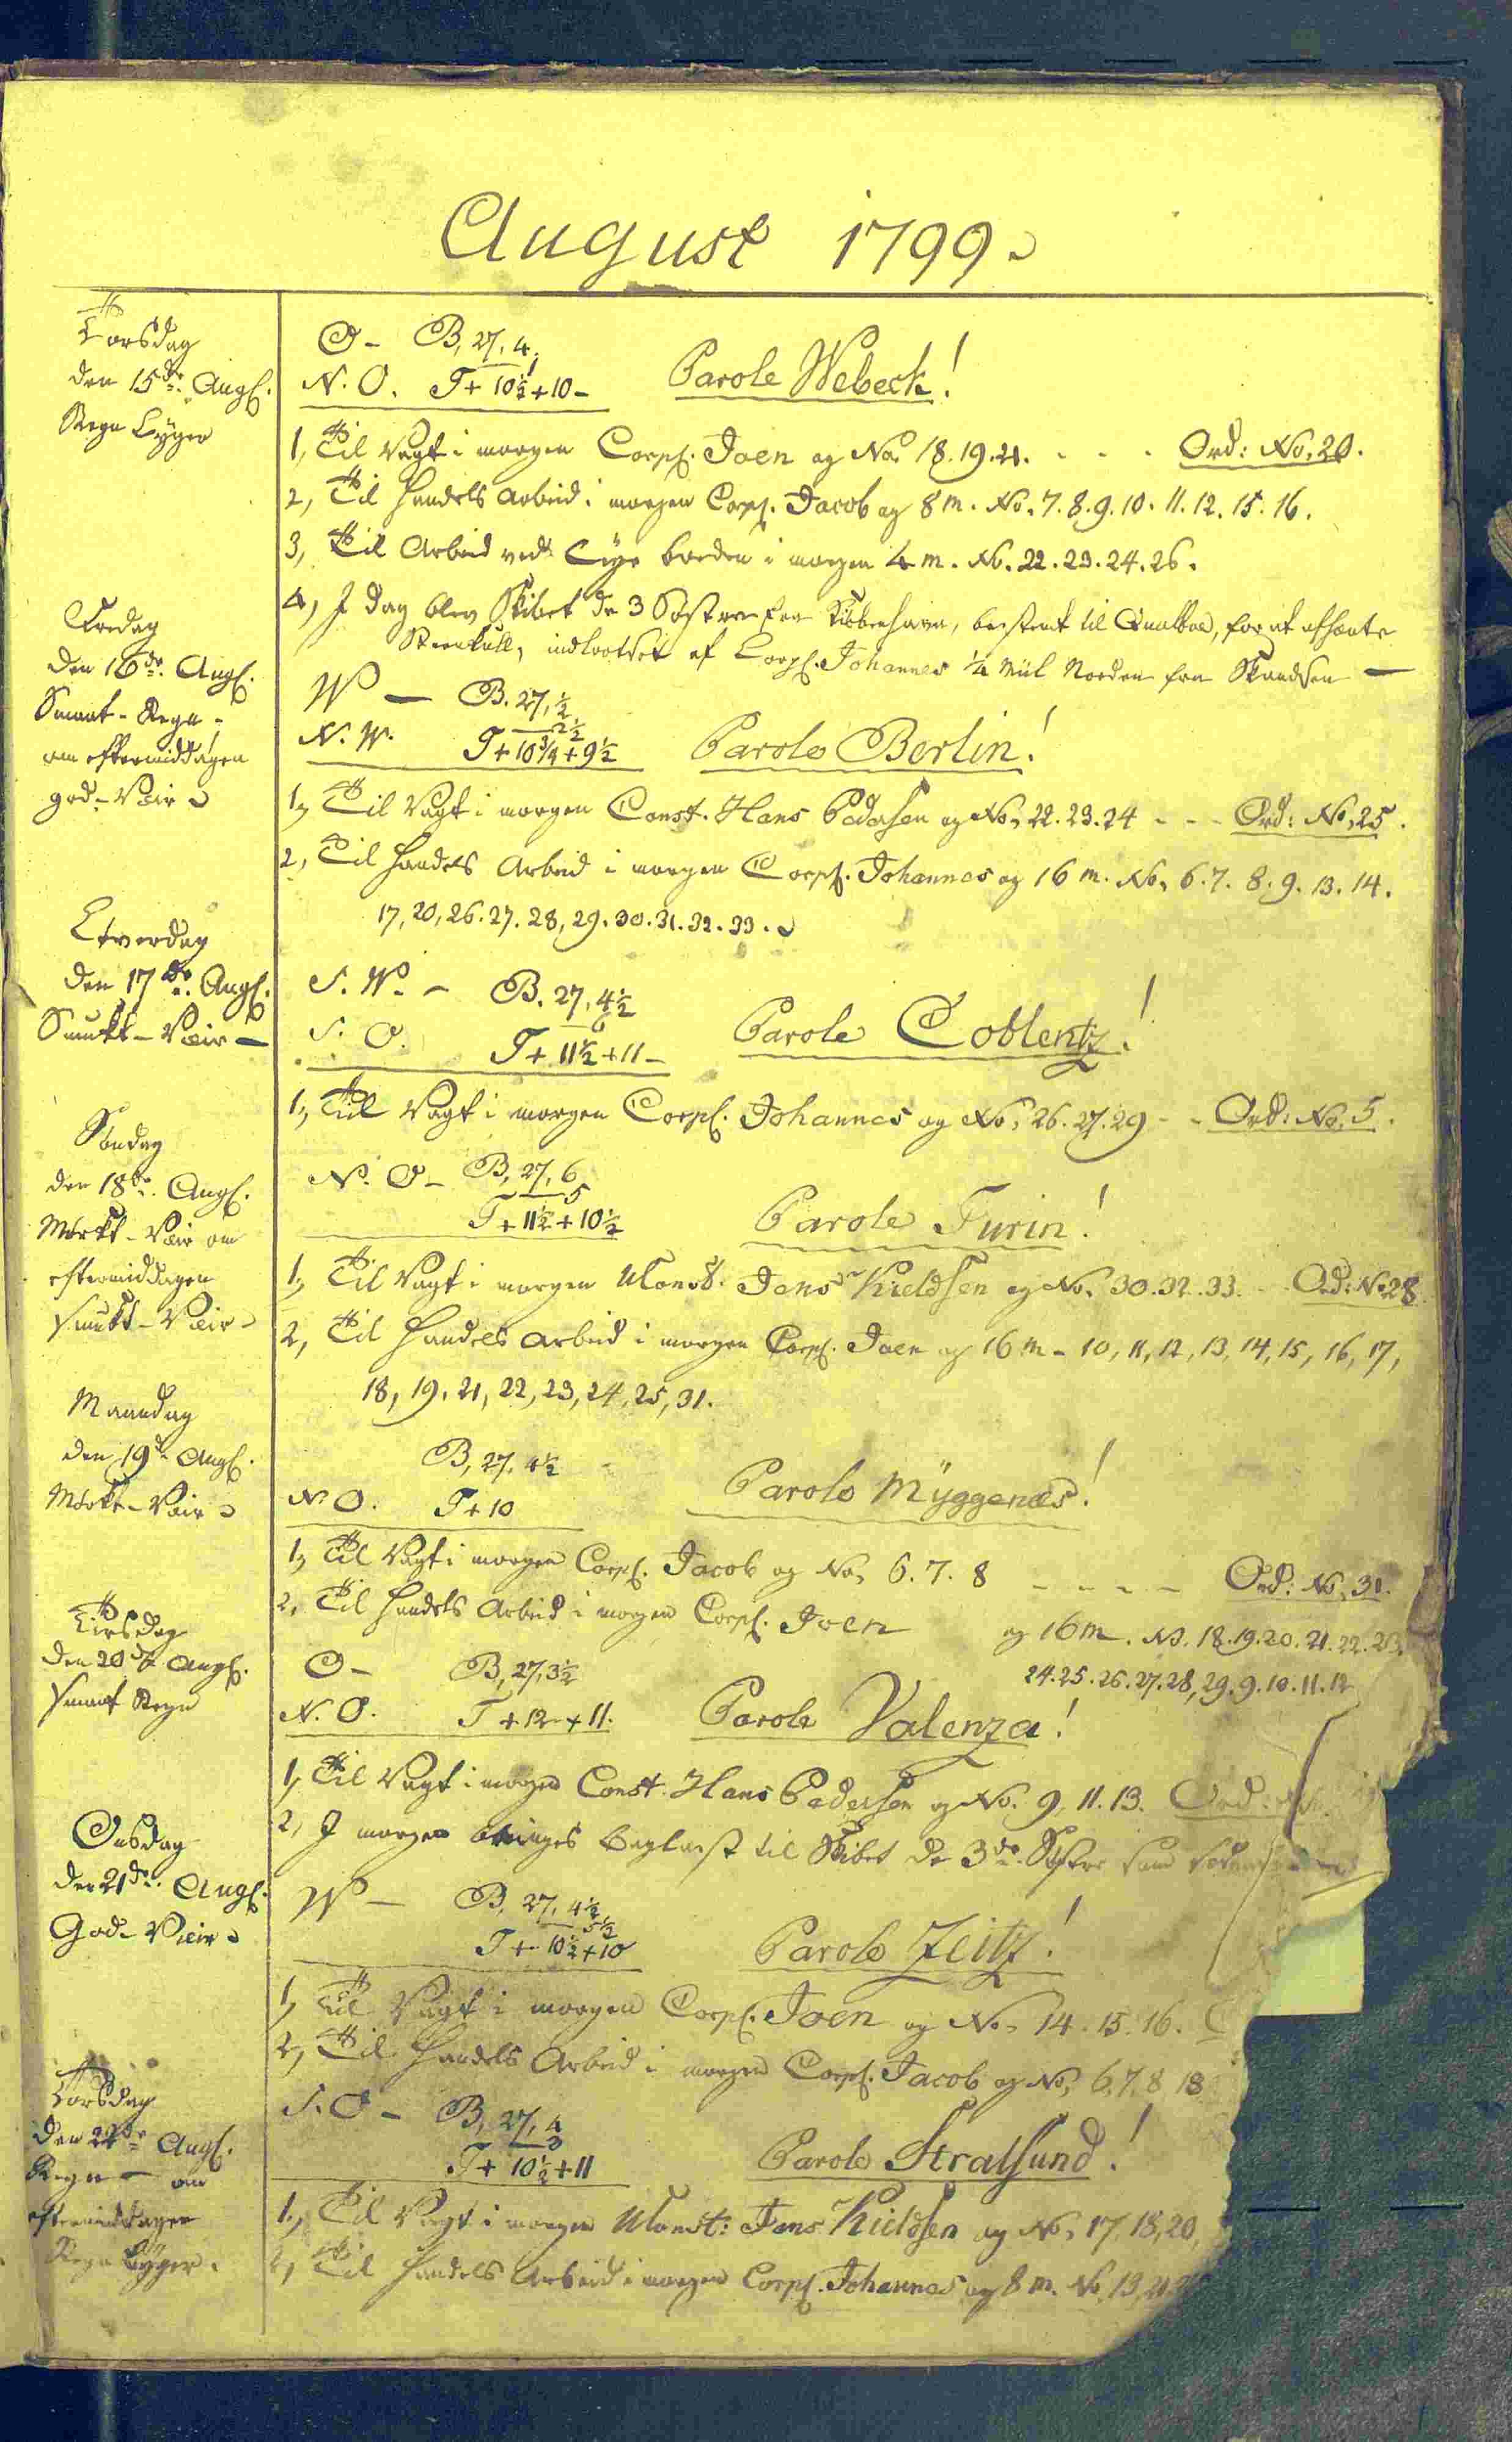 August 1799.
Torsdag
den 15de Augs.
Regn Byger
O - B, 27, 4.
N. O. T+ 10½ + 10 -
Parole Webeck!
1, Til Vagt i morgen Corpl. Joen og No. 18. 19. 21. - - - Ord: No, 20.
2, Til Handels Arbeid i morgen Corpl. Jacob og 8 m. No. 7. 8. 9. 10. 11. 12. 15. 16.
3, Til Arbeid ved i morgen 4 m. No. 22. 23. 24. 26.
4, I dag blev Skibet de 3 Søstre fra Kiøbenhavn, bestemt til Qualboe, for at afhente
Steenkull, indlootset af Corpl. Johannes ¼ Miil Norden fra Skandsen -
Fredag
den 16de Augs.
Smaat - Regn -
om eftermiddagen
god - Veir
W - B. 27, ½
2½
N. W. T+ 10¾ + 9½
Parole Berlin!
1, Til Vagt i morgen Const. Hans Pedersen og No, 22. 23. 24 - - - Ord: No, 25.
2, Til Handels Arbeid i morgen Corpl. Johannes og 16 m. No, 6. 7. 8. 9. 13. 14.
17, 20, 26. 27. 28, 29. 30. 31. 32. 33.
Løverdag
den 17de Augs.
Smukt - Veir -
S. W. - B. 27, 4½
6
S. O. T+ 11½ + 11 -
Parole Coblentz!
1, Til Vagt i morgen Corpl. Johannes og No, 26. 27. 29 - - Ord: No, 5.
Søndag
den 18de Augs.
Mørkt - Veir om
eftermiddagen
smukt - Veir
N. O - B, 27, 6
5
T+ 11½ + 10½
Parole Turin!
1, Til Vagt i morgen Const. Jens Kieldsen og No. 30. 32. 33. - - Ord: No 28
2, Til Handels Arbeid i morgen Corpl. Joen og 16 m - 10, 11, 12, 13, 14, 15, 16, 17,
18, 19, 21, 22, 23, 24, 25, 31.
Maandag
den 19de Augs.
Mørkt - Veir
B, 27, 4½
N. O. T+ 10
Parole Myggenæs!
1, Til Vagt i morgen Corpl. Jacob og No, 6. 7. 8 - - - - Ord: No, 31.
2, Til Handels Arbeid i morgen Corpl. Joen og 16 m. No. 18. 19. 20. 21. 22. 23.
24. 25. 26. 27. 28, 29. 9. 10. 11. 12
Tirsdag
den 20de Augs.
smaat Regn
O - B, 27, 3½
N. O. T + 12 + 11.
Parole Valenza!
1, Til Vagt i morgen Const. Hans Pedersen og No. 9. 11. 13. Ord:
2, I morgen bringes Baglast til Skibet de 3de Søstre
Onsdag
den 21de Augs.
God - Veir
W - B, 27, 4½
5½
T + 10½ + 10
Parole Zeitz!
1, Til Vagt i morgen Corpl. Joen og No, 14. 15. 16.
2, Til Handels Arbeid i morgen Corpl. Jacob og No, 6, 7, 8, 18
Torsdag
den 22de Augs.
Regn - om
eftermiddagen
Regn Byger.
S. O - B, 27, 4
3
T + 10½ + 11
Parole Stralsund!
1, Til Vagt i morgen Const: Jens Kieldsen og No, 17, 18, 20,
2, Til Handels Arbeid i morgen Corpl. Johannes og 8 m. No, 19, 21